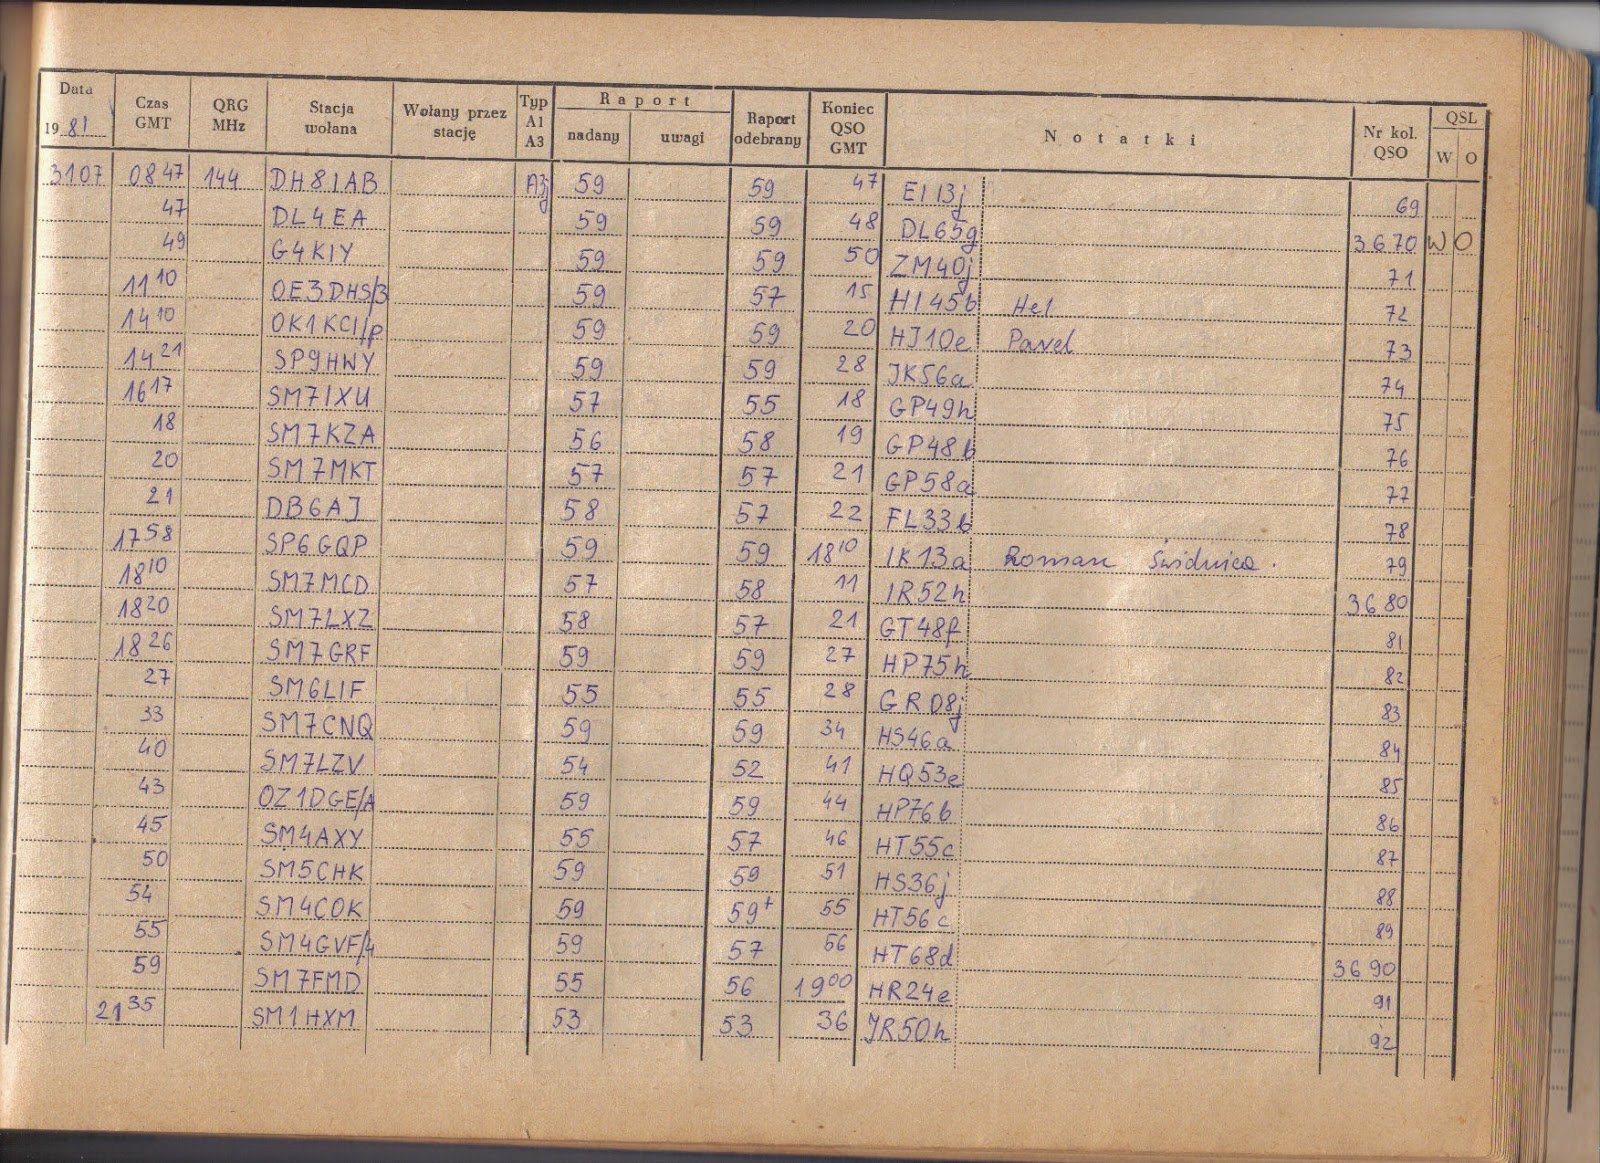 Data Czas GMT QRG MHz Stacja wołana Wołany przez stację Typ A1 A3 Raport nadany uwagi Raport odebrany Koniec QSO GMT Notatki Nr kol. QSO QSL W O
1981
3107 0847 144 DH8IAB A3j 59 59 47 EI13j 69
47 DL4EA 59 59 48 DL65g 3670 W O
49 G4KIY 59 59 50 ZM40j 71
1110 OE3DHS/3 59 57 15 HI45b Hel 72
1410 OK1KCI/p 59 59 20 HJ10e Pavel 73
1421 SP9HWY 59 59 28 JK56a 74
1617 SM7IXU 57 55 18 GP49h 75
18 SM7KZA 56 58 19 GP48b 76
20 SM7MKT 57 57 21 GP58a 77
21 DB6AJ 58 57 22 FL33b 78
1758 SP6GQP 59 59 1810 IK13a Roman Świdnica. 79
1810 SM7MCD 57 58 11 IR52h 3680
1820 SM7LXZ 58 57 21 GT48f 81
1826 SM7GRF 59 59 27 HP75h 82
27 SM6LIF 55 55 28 GR08j 83
33 SM7CNQ 59 59 34 HS46a 84
40 SM7LZV 54 52 41 HQ53e 85
43 OZ1DGE/A 59 59 44 HP76b 86
45 SM4AXY 55 57 46 HT55c 87
50 SM5CHK 59 59 51 HS36j 88
54 SM4COK 59 59+ 55 HT56c 89
55 SM4GVF/4 59 57 56 HT68d 3690
59 SM7FMD 55 56 1900 HR24e 91
2135 SM1HXM 53 53 36 JR50h 92